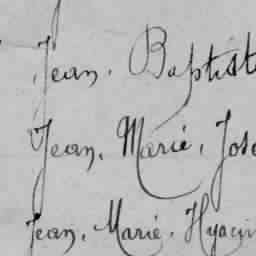 Jean, Baptist
Jean, Marie, Jose
Jean, Marie, Hyacin